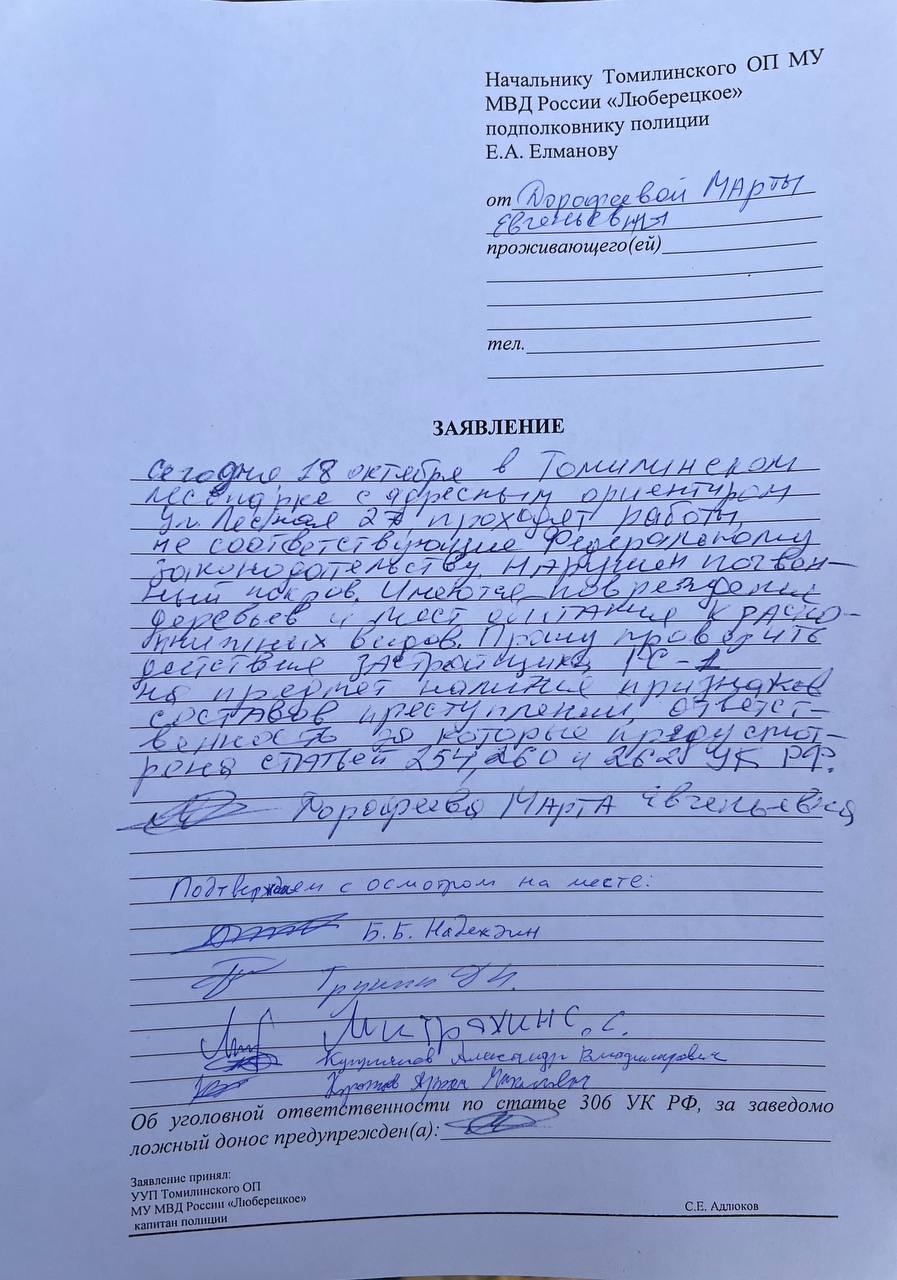 Начальнику Томилинского ОП МУ
МВД России «Люберецкое»
подполковнику полиции
Е.А. Елманову
от Дорофеевой Марты
Евгеньевны
проживающего(ей)
тел.
ЗАЯВЛЕНИЕ
Сегодня, 18 октября в Томилинском
лесопарке с адресным ориентиром
ул. Лесная 27 проходят работы,
не соответствующие Федеральному
законодательству. Нарушен почвен-
ный покров. Имеются повреждения
деревьев и мест обитания красно-
книжных видов. Прошу проверить
действия застройщика ГС-1
на предмет наличия признаков
составов преступлений, ответст-
венность за которые предусмот-
рена статьей 254, 260 и 262 УК РФ.
Дорофеева Марта Евгеньевна
Подтверждаем с осмотром на месте:
Б.Б. Надеждин
Митрахин С. С.
Александр Владимирович
Об уголовной ответственности по статье 306 УК РФ, за заведомо
ложный донос предупрежден(а):
Заявление принял:
УУП Томилинского ОП
МУ МВД России «Люберецкое»
капитан полиции
С.Е. Адлюков